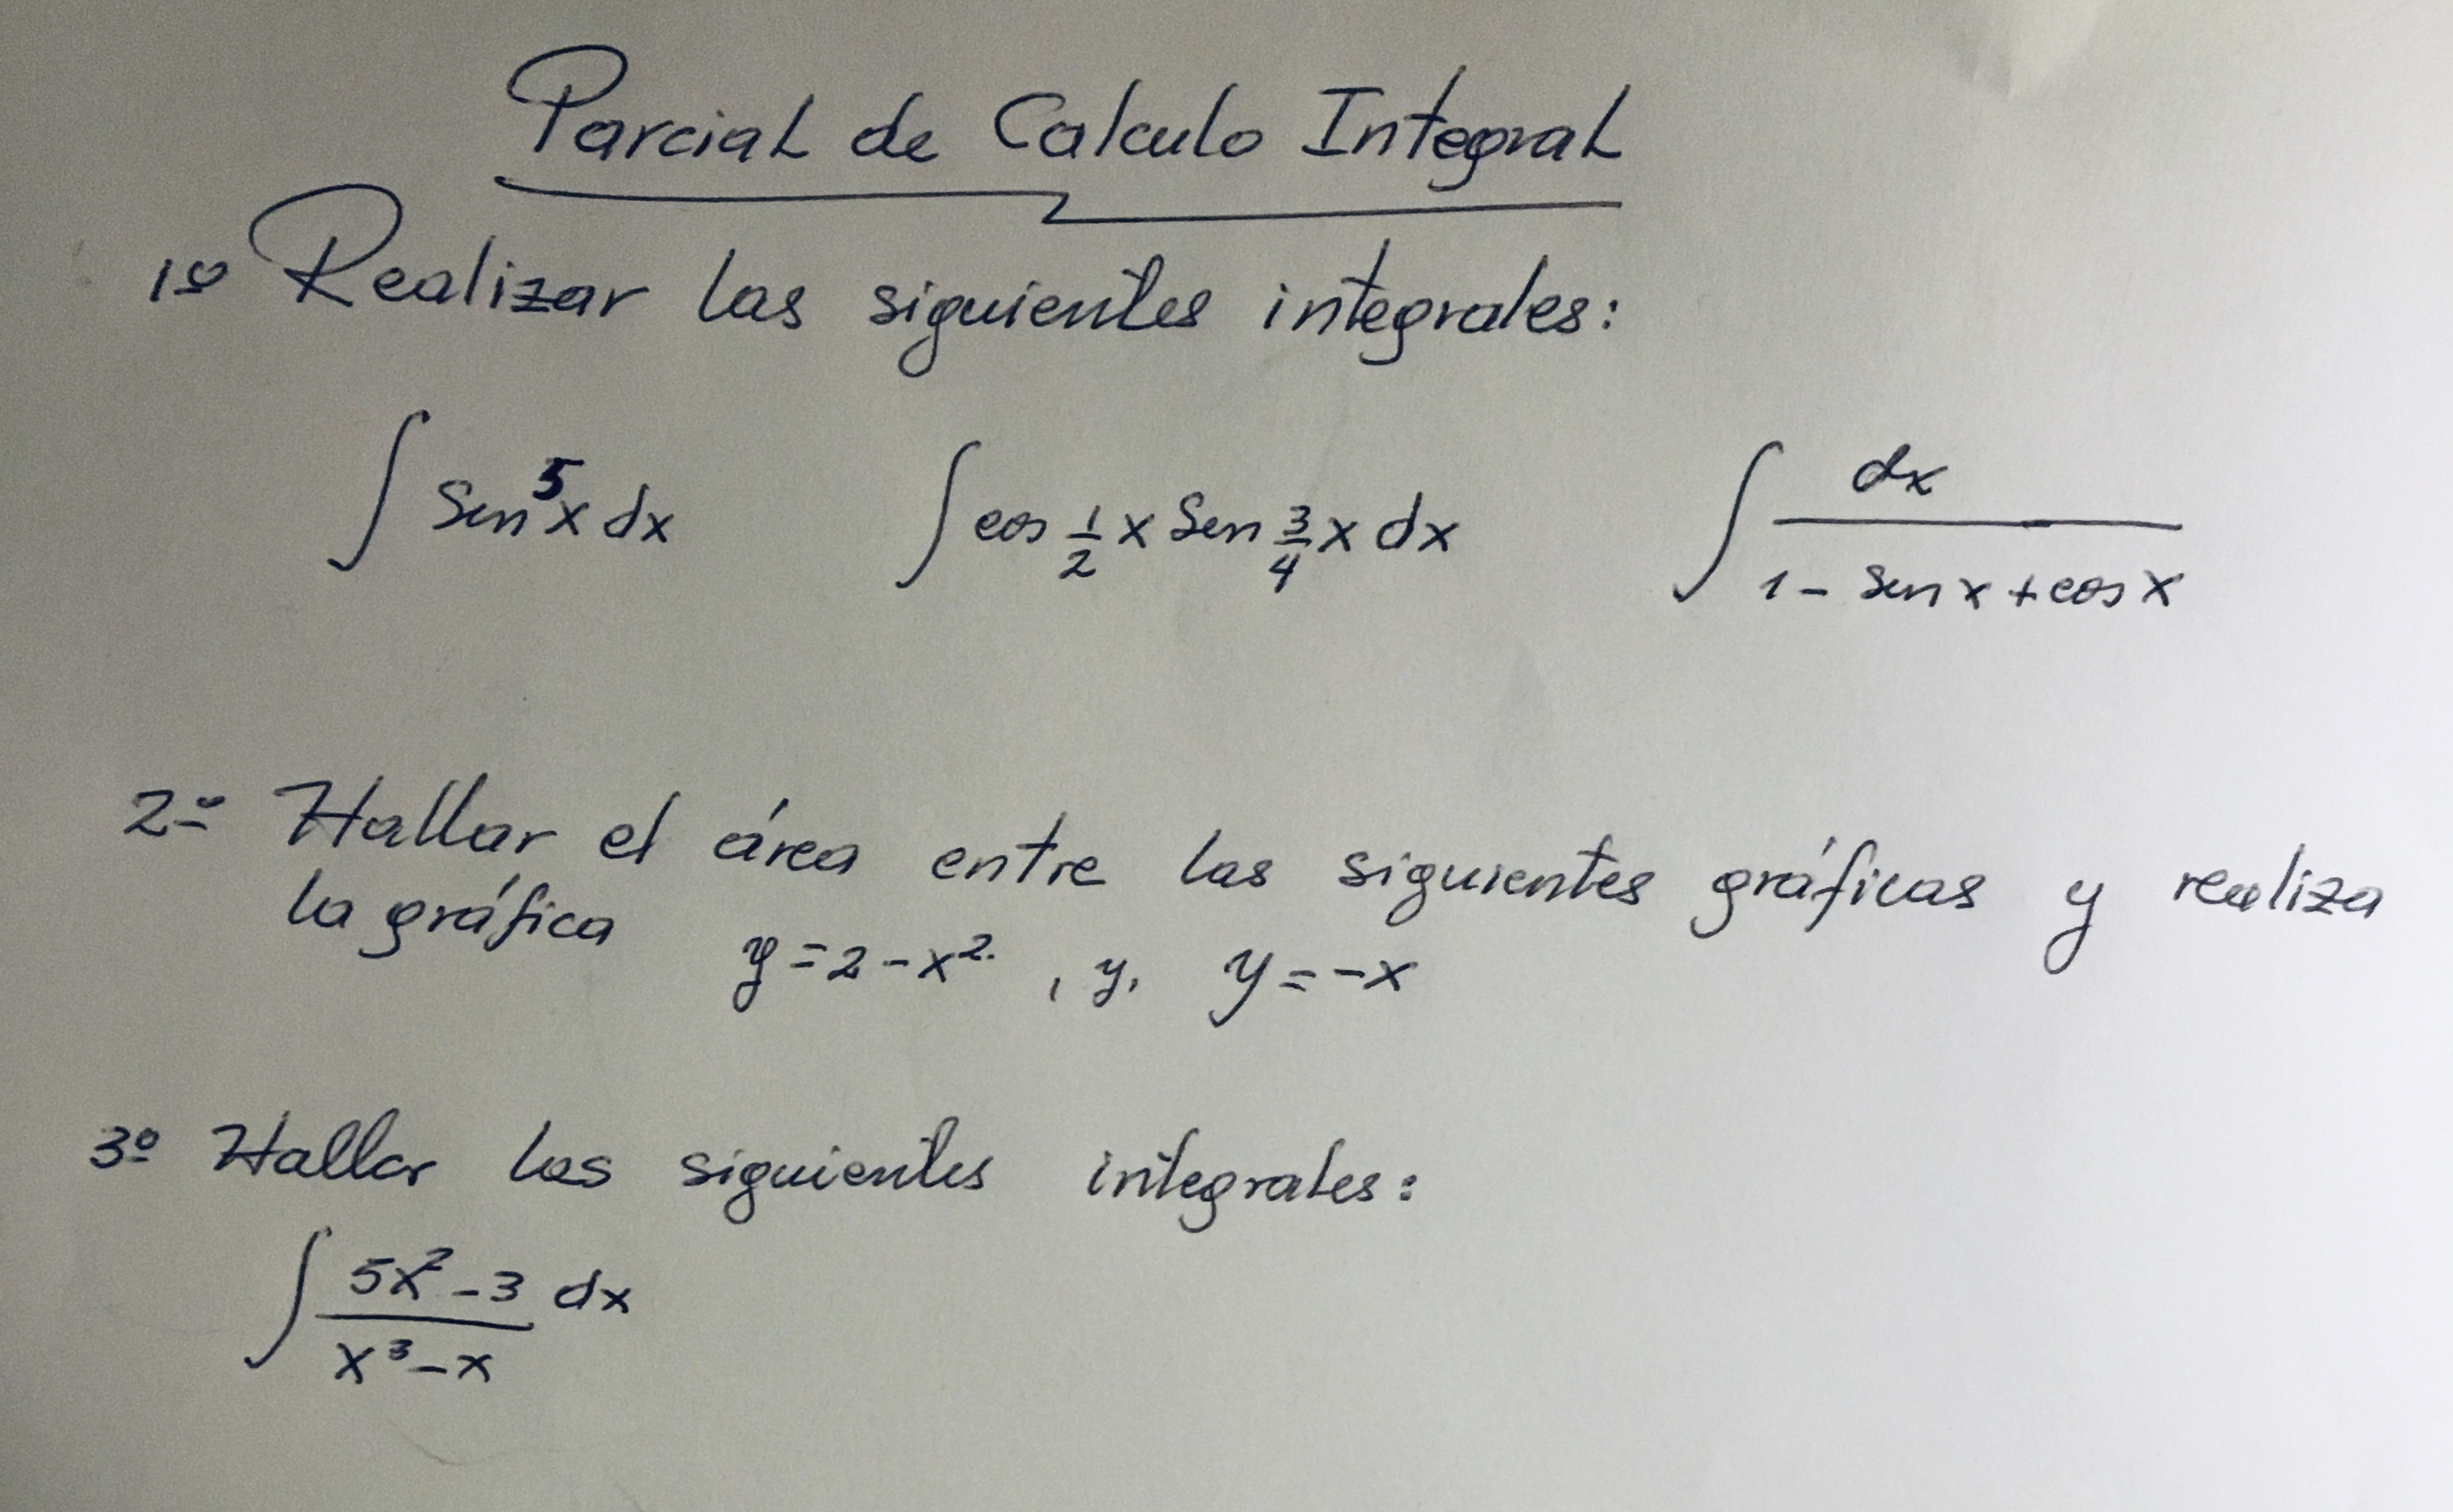 Parcial de Calculo Integral
1º Realizar las siguientes integrales:
∫ Sen⁵x dx    ∫ cos 1/2 x Sen 3/4 x dx    ∫ dx / (1 - sen x + cos x)
2º Hallar el área entre las siguientes gráficas y realiza
la gráfica y = 2 - x². , y, y = -x
3º Hallar las siguientes integrales:
∫ (5x² - 3) / (x³ - x) dx